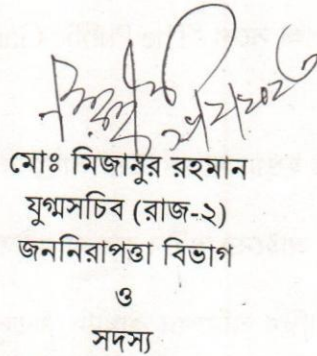 মোঃ মিজানুর রহমান
যুগ্মসচিব (রাজ-২)
জননিরাপত্তা বিভাগ
ও
সদস্য